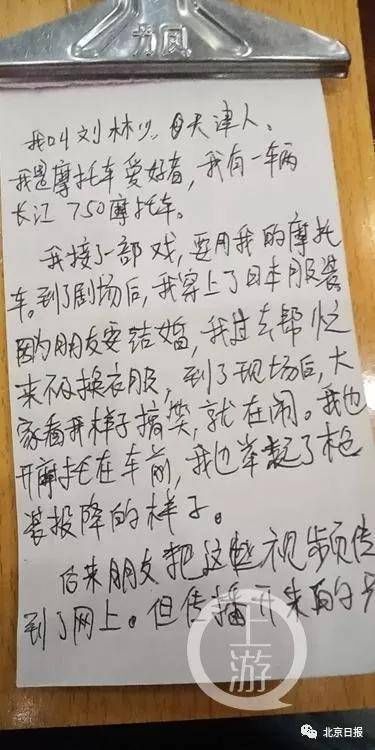 力风
我叫刘林
天津人。
我是摩托车爱好者，我有一辆
长江750摩托车。
我接了一部戏，要用我的摩托
车。到了剧场后，我穿上了日本服装
因为朋友要结婚，我过去帮忙
来不及换衣服，到了现场后，大
家看我样子搞笑，就在闹。我也
开摩托在车前，我也举起了枪
装投降的样子。
后来朋友把这些视频传
到了网上。但传播开来的
上游
北京日报